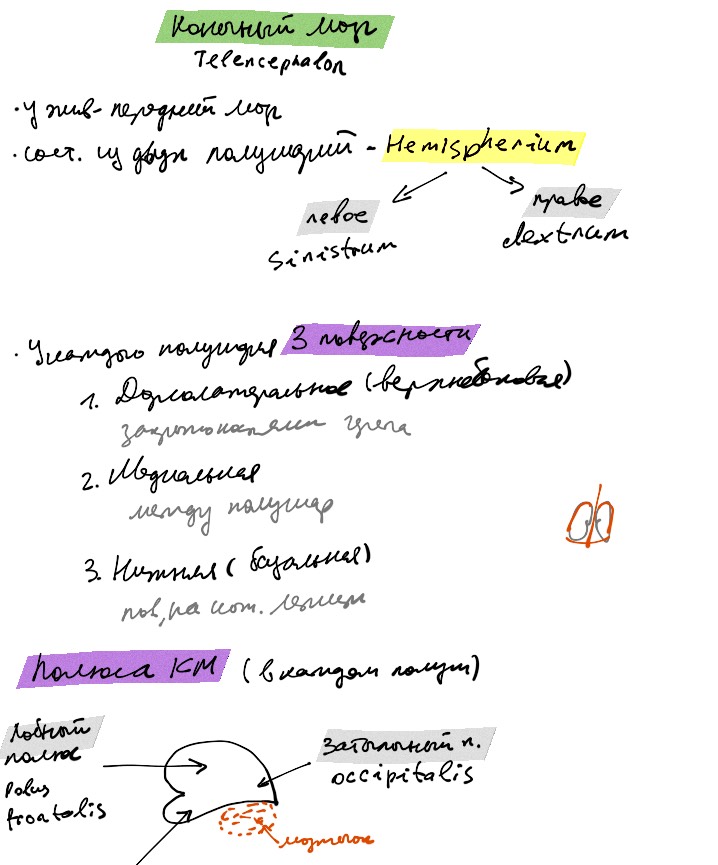 Конечный мозг
Telencephalon
· у жив- передний мозг
· сост. из двух полушарий - Hemispherium
левое
правое
sinistrum
dextrum
· У каждого полушария 3 поверхности
1. Дорсолатеральное (верхнебоковая)
черепа
2. Медиальная
между полушар
3. Нижняя (базальная)
пов, на кот. лежим
Полюса КМ (в каждом полуш)
Лобный
полюс
Polus
frontalis
Затылочный п.
occipitalis
мозжечок